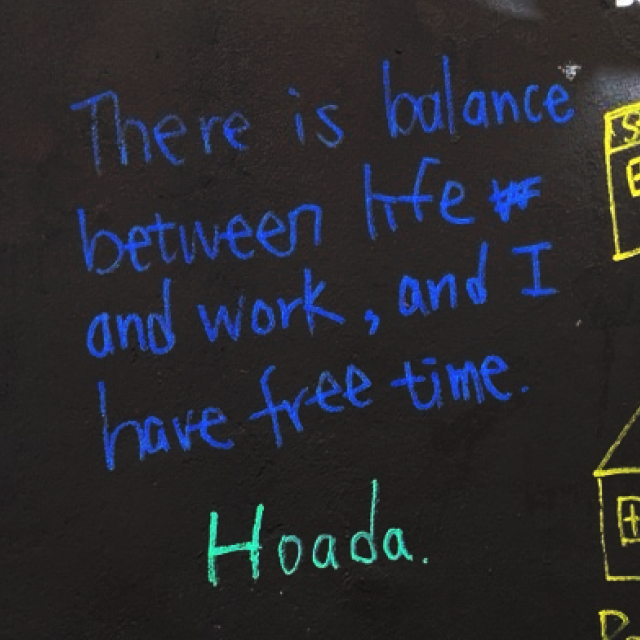 There is balance
between life
and work, and I
have free time.
Hoada.